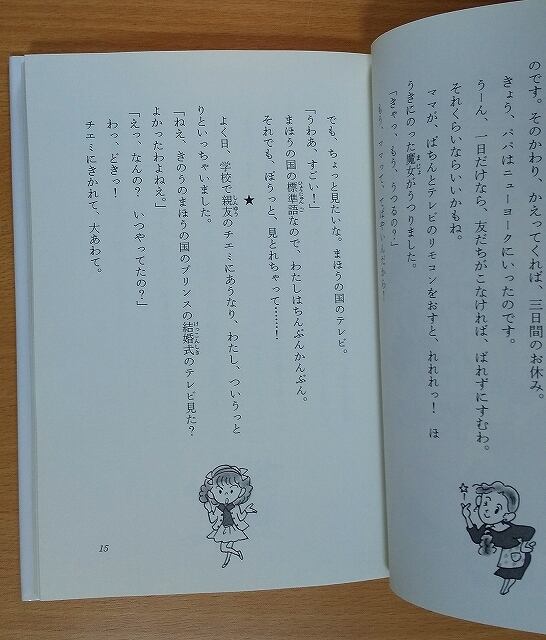 のです。そのかわり、かえってくれば、三日間のお休み。
きょう、パパはニューヨークにいったのです。
うーん、一日だけなら、友だちがこなければ、ばれずにすむわ。
それくらいならいいかもね。
ママが、ぱちんとテレビのリモコンをおすと、れれれっ！　ほ
うきにのった魔女がうつりました。
「きゃっ、もう、うつるの？」
でも、ちょっと見たいな。まほうの国のテレビ。
「うわあ、すごい！」
まほうの国の標準語なので、わたしはちんぷんかんぷん。
それでも、ぼうっと、見とれちゃって……！
★
よく日、学校で親友のチエミにあうなり、わたし、ついうっと
りといっちゃいました。
「ねえ、きのうのまほうの国のプリンスの結婚式のテレビ見た？
よかったわよねえ。」
「えっ、なんの？　いつやってたの？」
わっ、どきっ！
チエミにきかれて、大あわて。
15